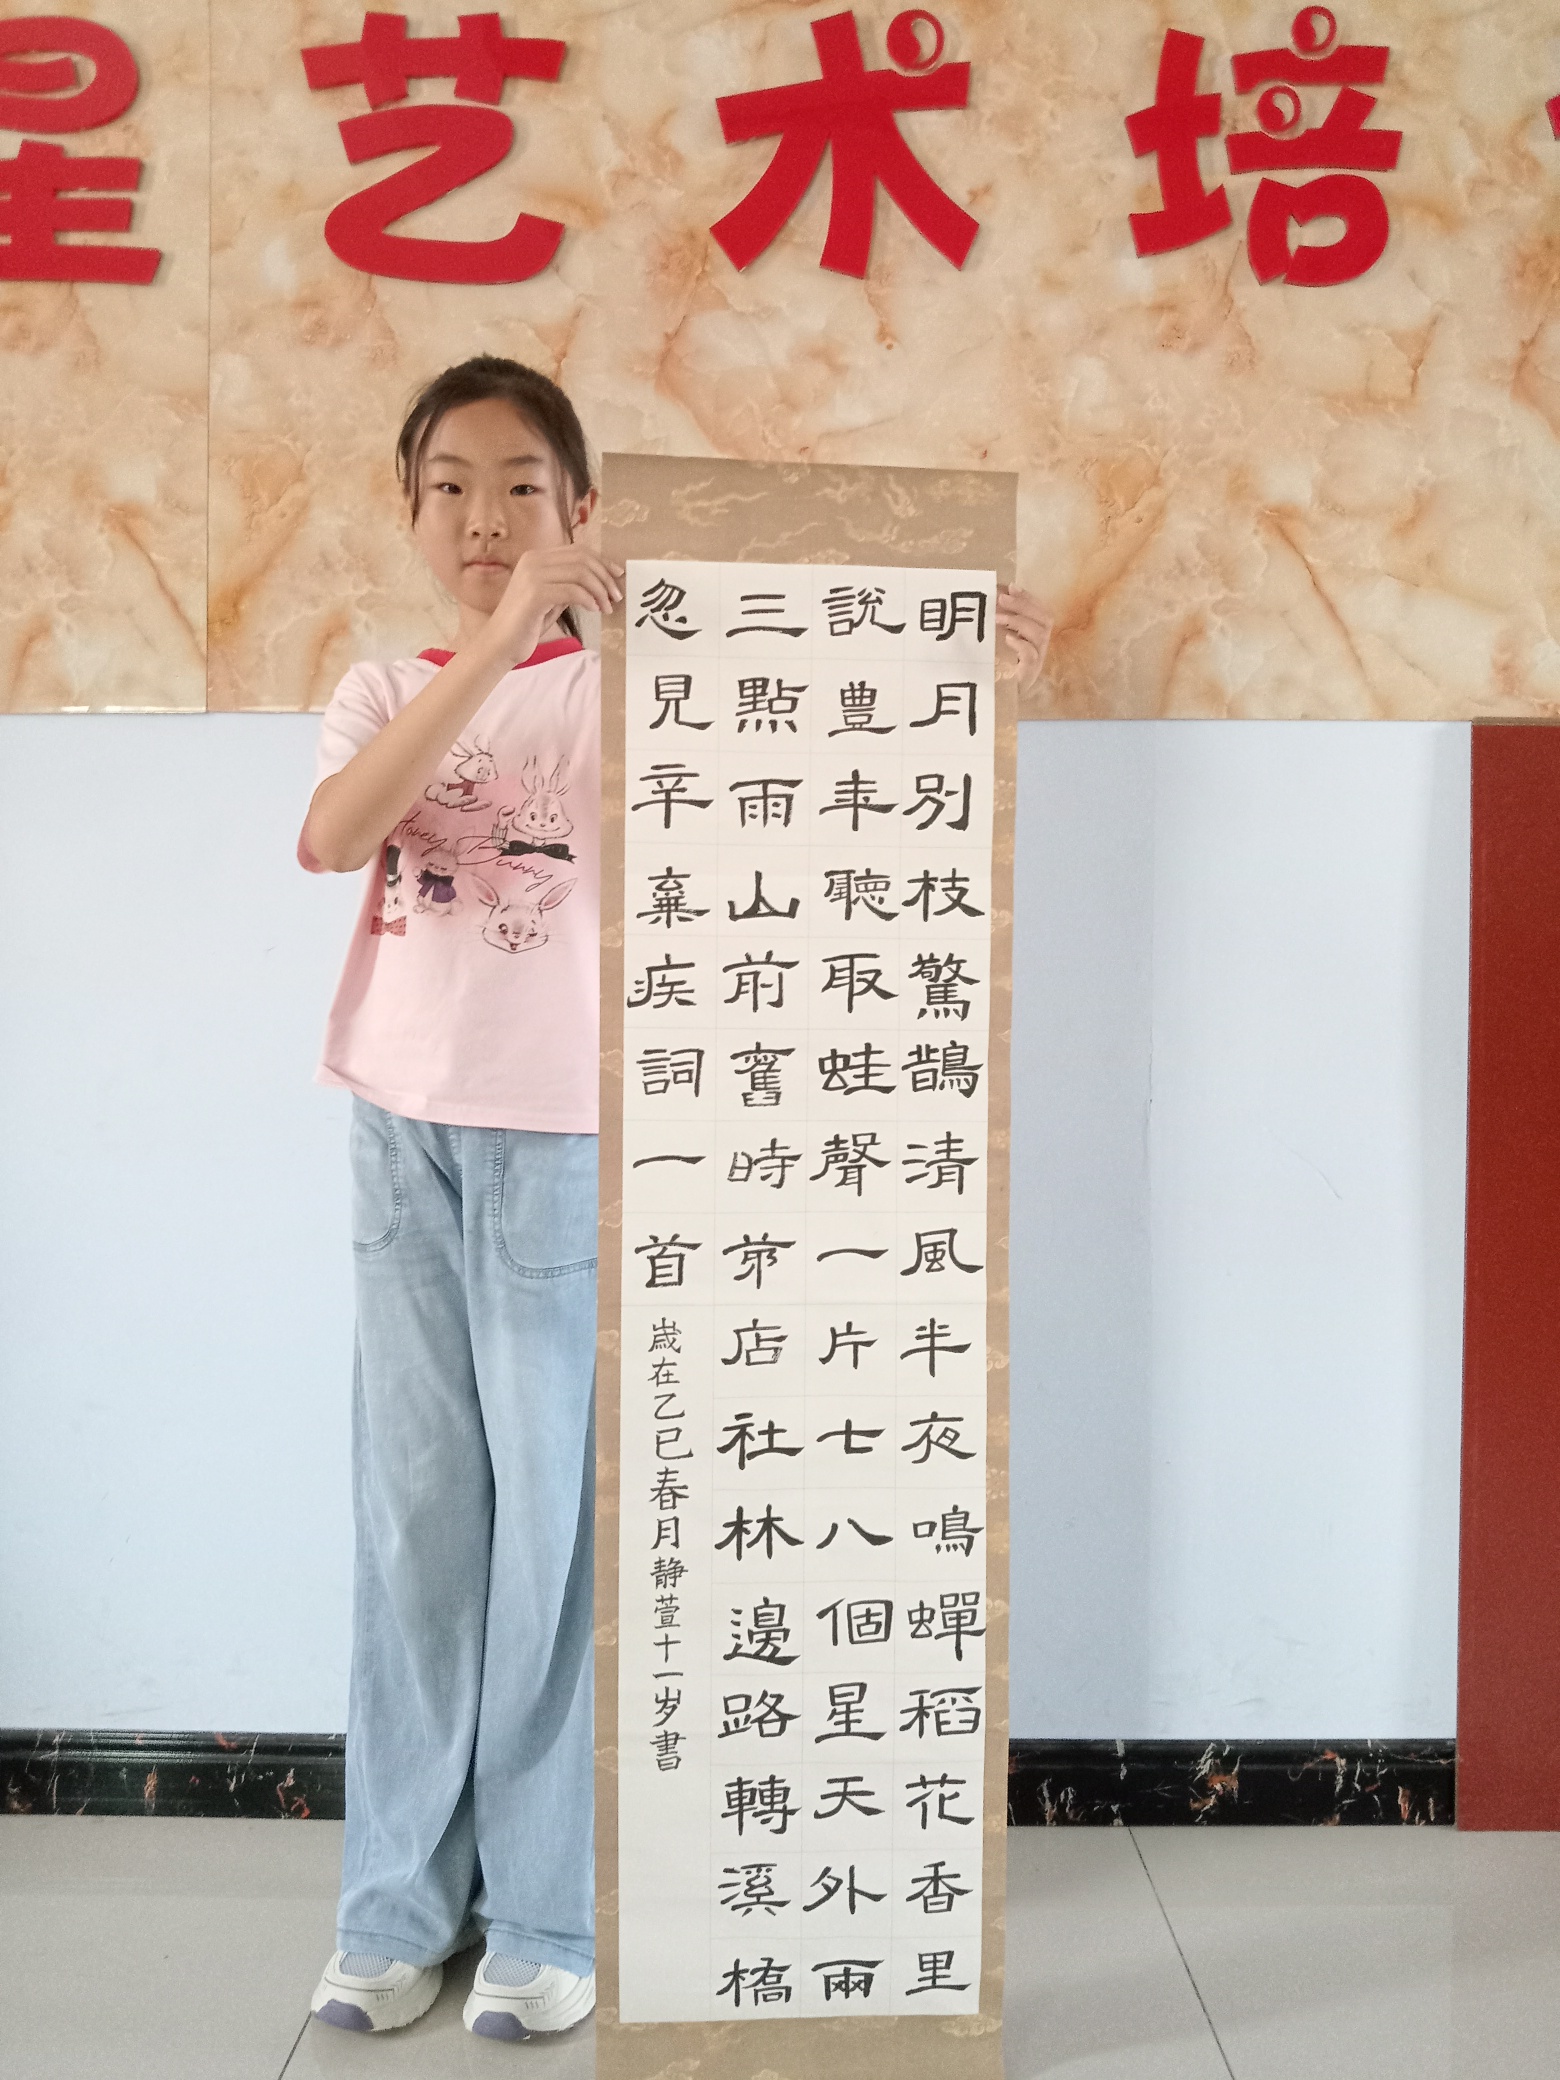 星艺术培
明月别枝驚鵲清風半夜鳴蟬稻花香里
說豊年聽取蛙聲一片七八個星天外兩
三點雨山前舊時茅店社林邊路轉溪橋
忽見辛棄疾詞一首
歲在乙巳春月静萱十一岁書
Honey Bunny